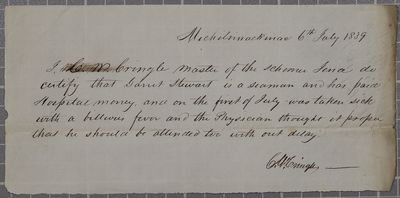 Michilimackinac 6th July 1839
I, C. M. Cringle Master of the Schooner Fenix do
certify that Daniel Stewart is a seaman and has paid
Hospital money, and on the first of July was taken sick
with a billeous fever and the Physician thought it proper
that he should be attended too with out delay
C. M. Cringle